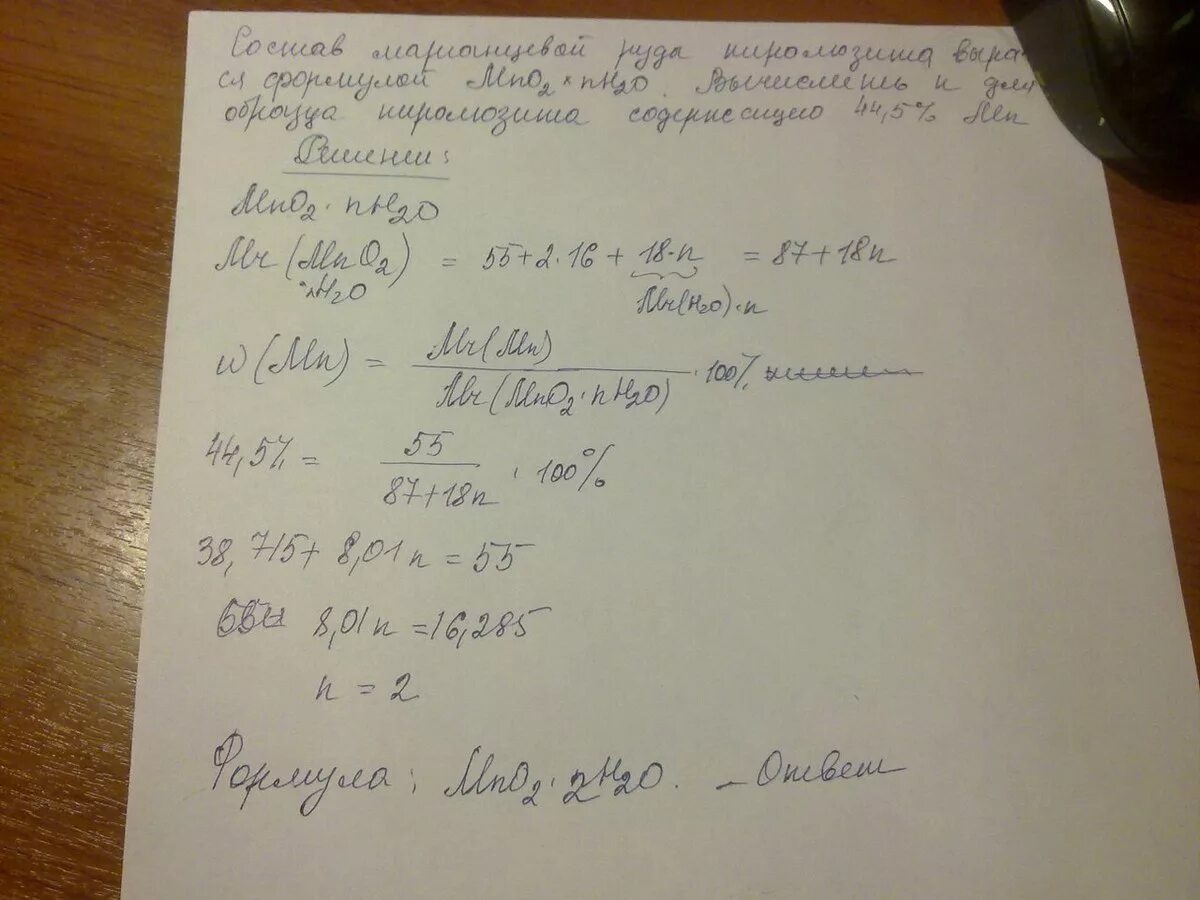 Состав марганцевой руды пиролюзита выра
ся формулой MnO₂ × nH₂O. Вычислить n для
образца пиролюзита содержащию 44,5% Mn
Решение:
MnO₂ · nH₂O
Mr (MnO₂) = 55 + 2·16 + 18·n = 87 + 18n
·nH₂O Mr(H₂O)·n
w (Mn) = Mr(Mn) / Mr(MnO₂·nH₂O) · 100%
44,5% = 55 / 87+18n · 100%
38,715 + 8,01n = 55
8,01n = 16,285
n = 2
Формула: MnO₂·2H₂O. – Ответ